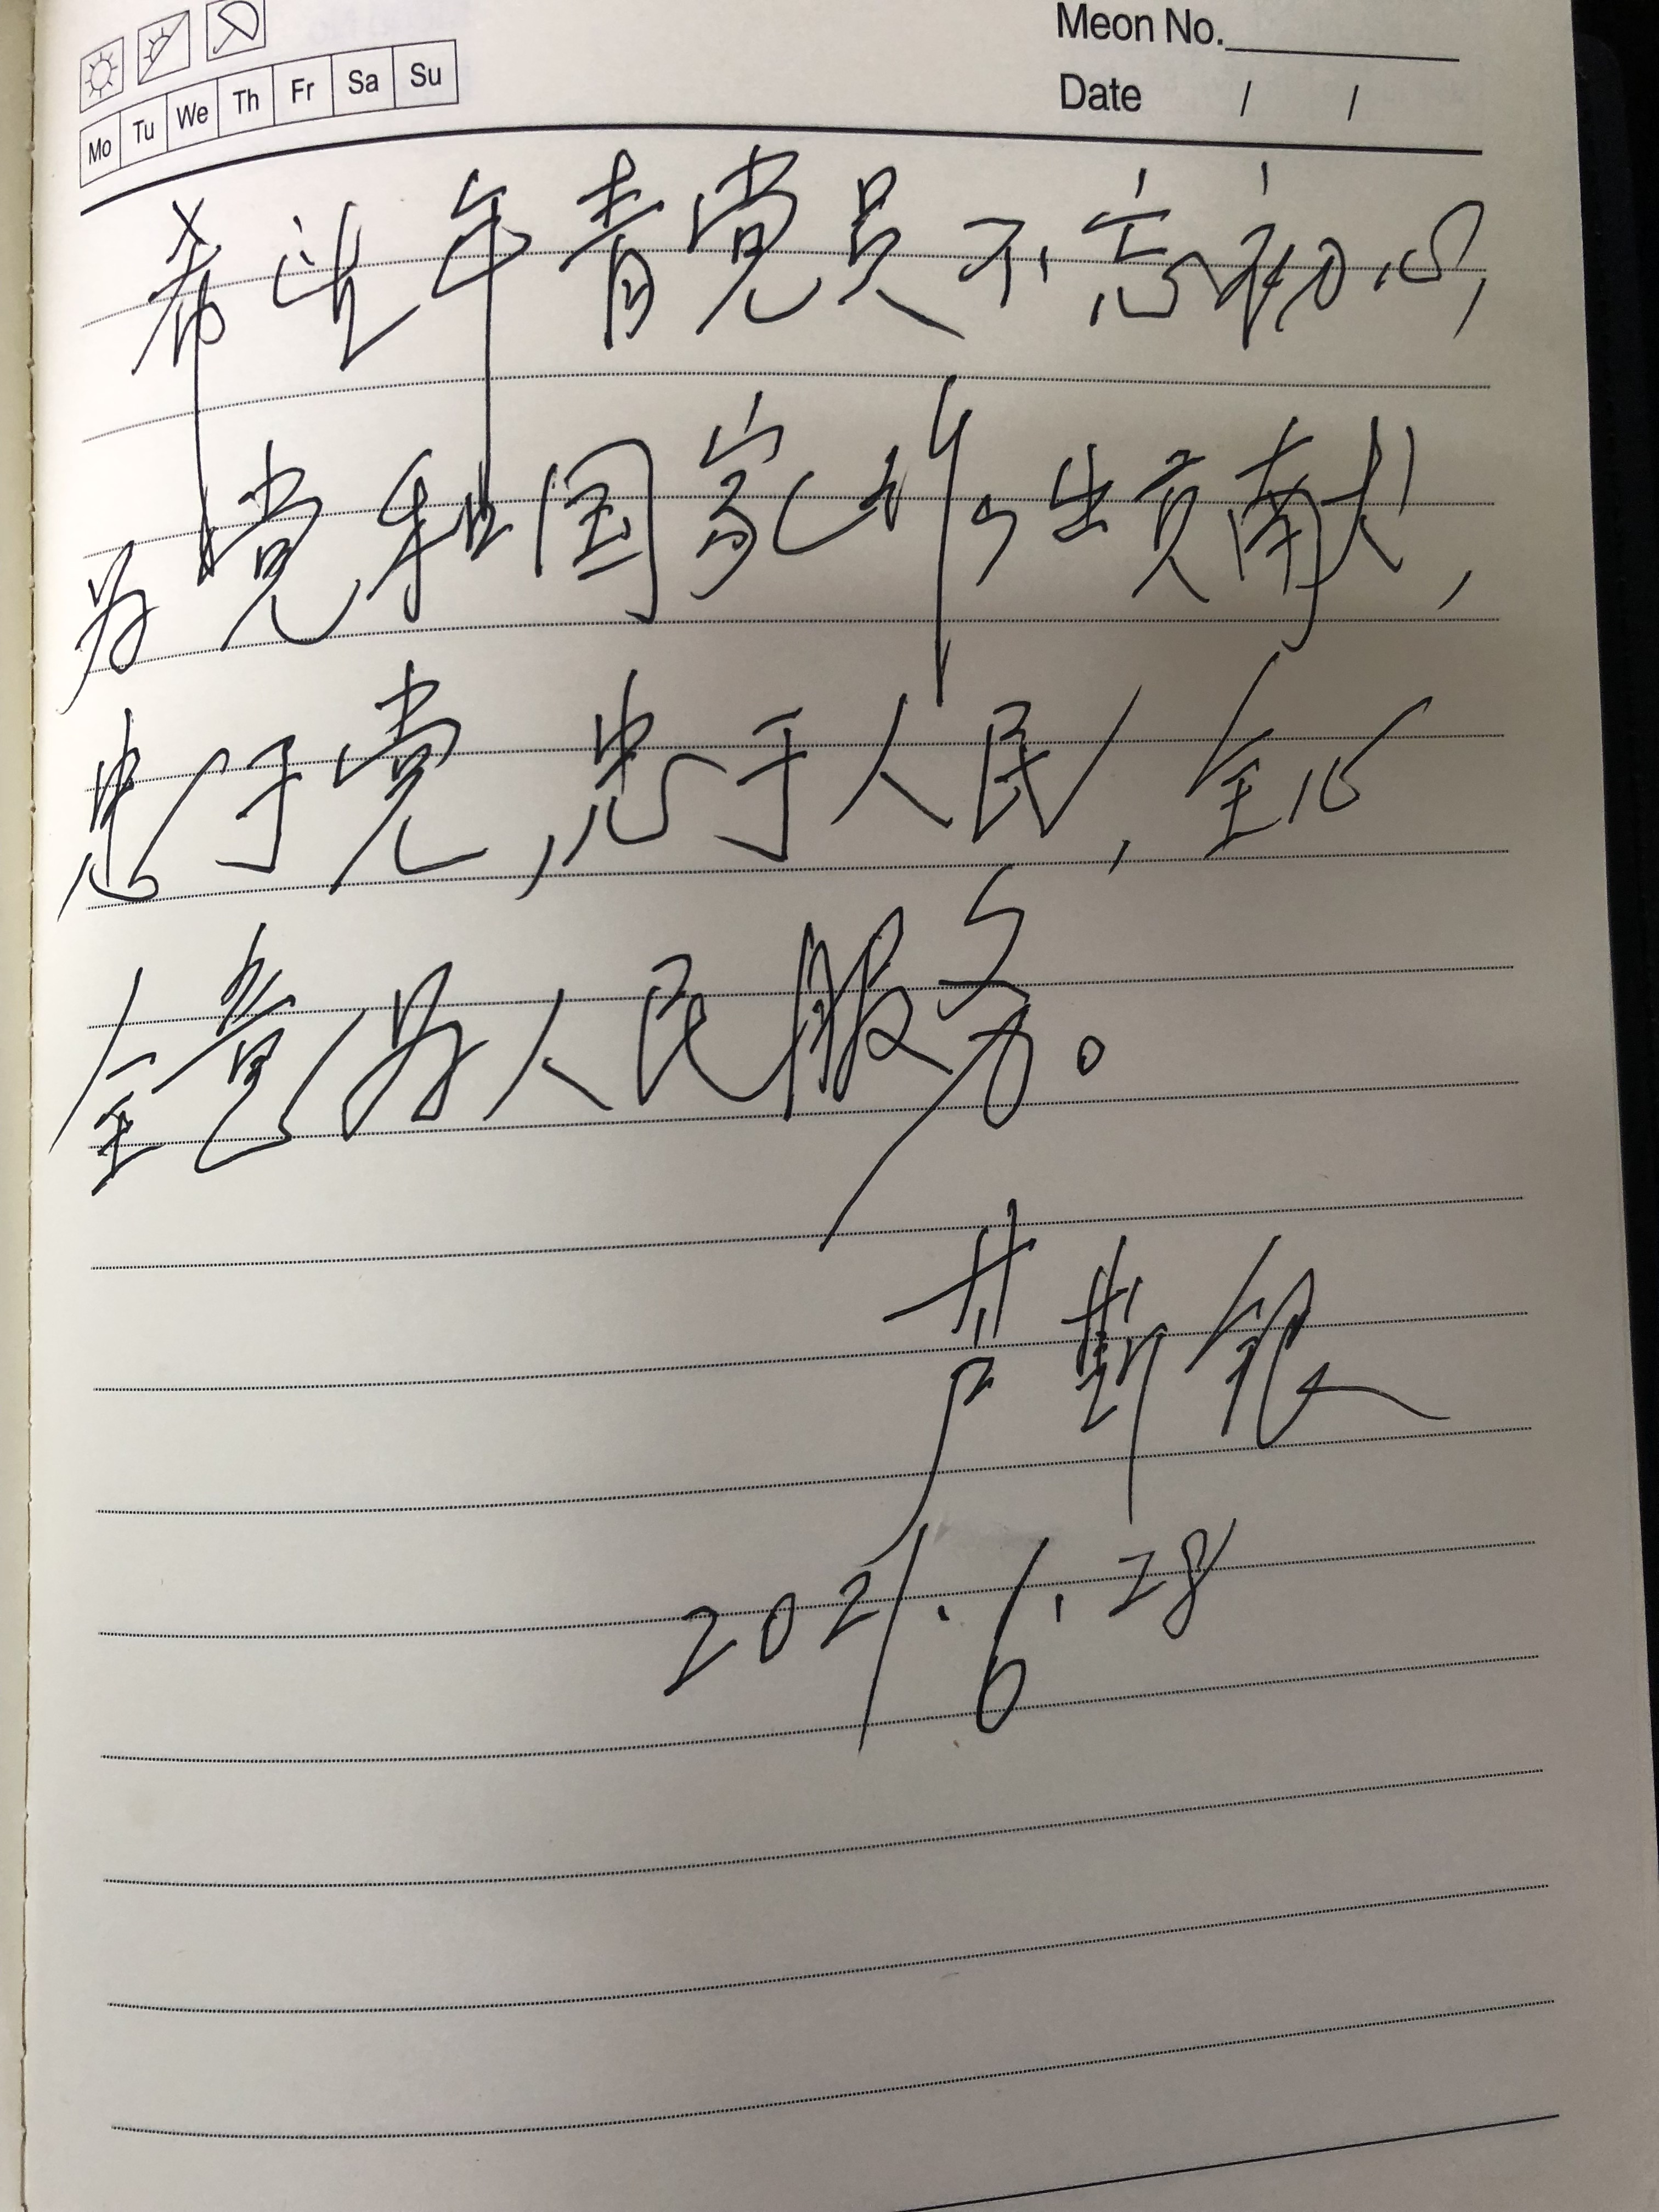 Meon No.
Mo Tu We Th Fr Sa Su
Date / /
希望年青党员不忘初心,
为党和国家作出贡献,
忠于党,忠于人民,全心
全意为人民服务。
芦
2021.6.28